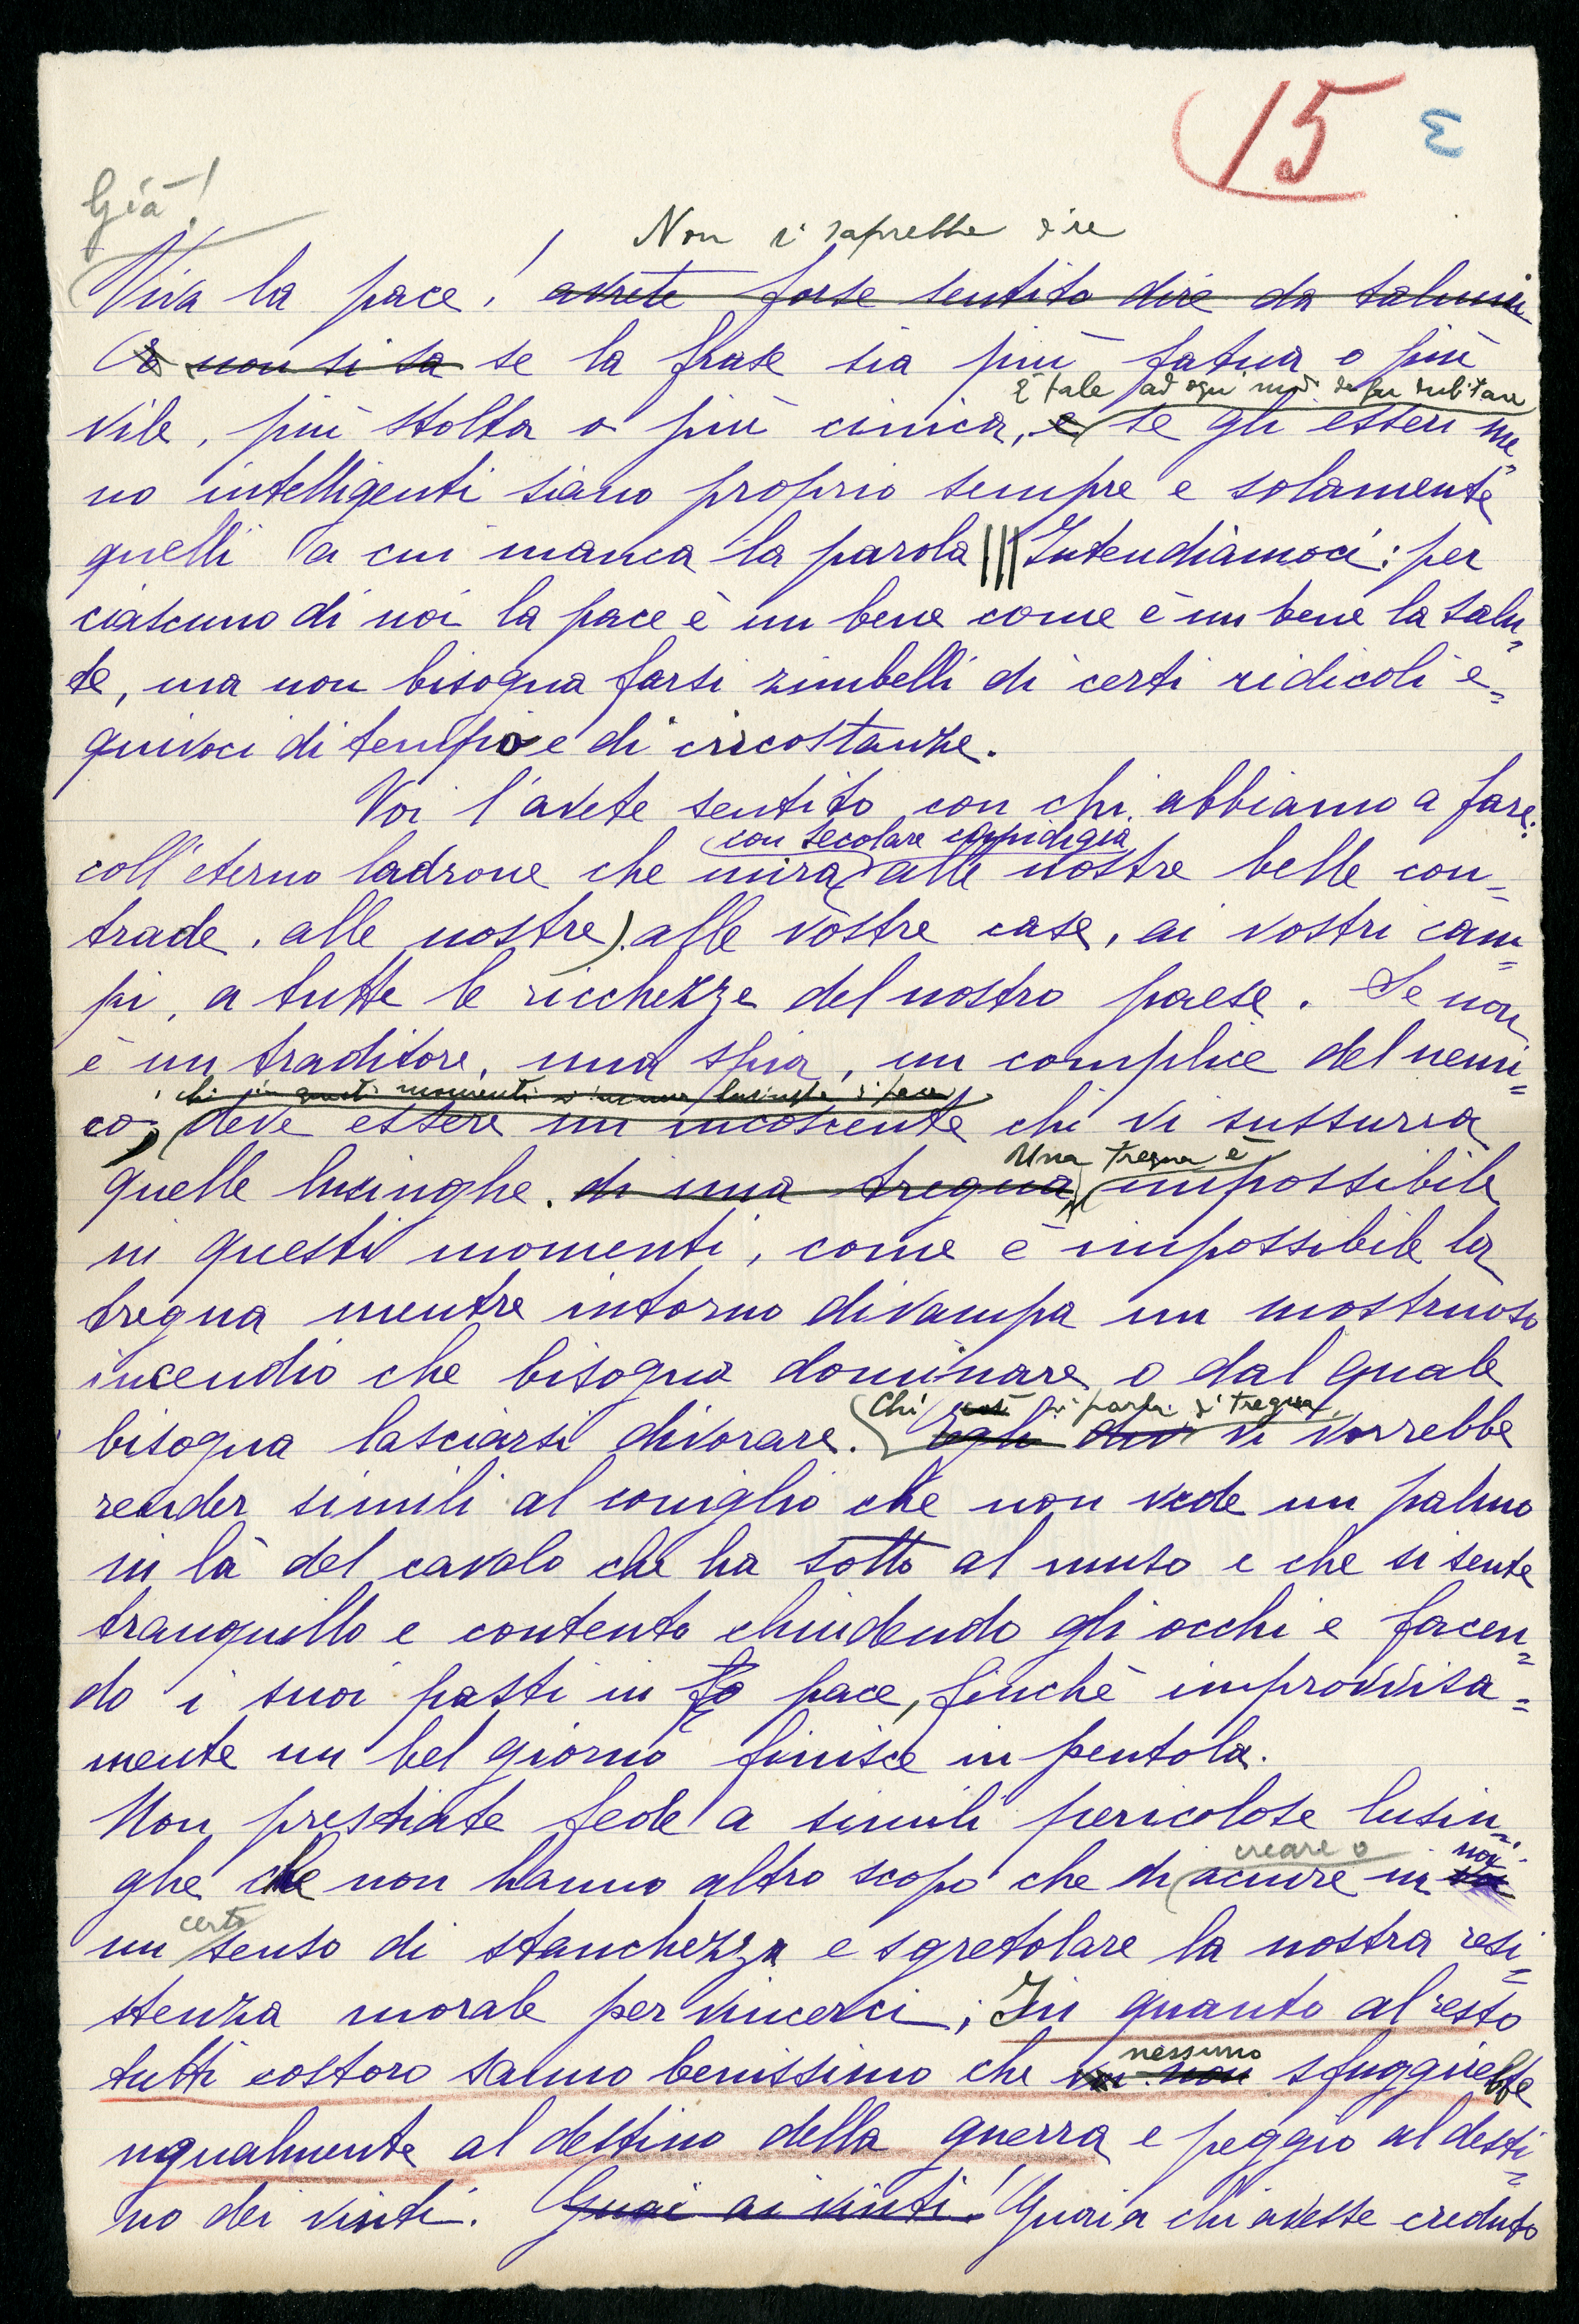 15 ε
Già!
Non si saprebbe dire
Viva la pace! avrete forse sentito dire da taluni
e non si sa se la frase sia più fatua o più
È tale ad ogni modo da far dubitare
vile, più stolta o più cinica, e se gli esseri me-
no intelligenti siano proprio sempre e solamente
quelli a cui manca la parola ||| Intendiamoci: per
ciascuno di noi la pace è un bene come è un bene la salu-
te, ma non bisogna farsi zimbelli di certi ridicoli e-
quivoci di tempo e di circostanze.
Voi l'avete sentito con chi abbiamo a fare:
con secolare cupidigia
coll'eterno ladrone che mira alle nostre belle con-
trade, alle nostre, alle vostre case, ai vostri cam-
pi, a tutte le ricchezze del nostro paese. Se non
è un traditore, una spia, un complice del nemi-
chi in questi momenti lusinghe di pace
co, deve essere un incosciente chi vi sussurra
Una tregua è
quelle lusinghe. di una tregua impossibile
in questi momenti, come è impossibile la
tregua mentre intorno divampa un mostruoso
incendio che bisogna dominare o dal quale
Chi così vi parla di tregua,
bisogna lasciarsi divorare. Egli vi vorrebbe
render simili al coniglio che non vede un palmo
in là del cavolo che ha sotto al muso e che si sente
tranquillo e contento chiudendo gli occhi e facen-
do i suoi pasti in pace, finchè improvvisa-
mente un bel giorno finisce in pentola.
Non prestiate fede a simili pericolose lusin-
creare o noi
ghe che non hanno altro scopo che di acuire in voi
certo
un senso di stanchezza e sgretolare la nostra resi-
stenza morale per vincerci; In quanto al resto
nessuno
tutti costoro sanno benissimo che voi non sfuggirebbe
ugualmente al destino della guerra e peggio al desti-
no dei vinti. Guai ai vinti! Guai a chi avesse creduto